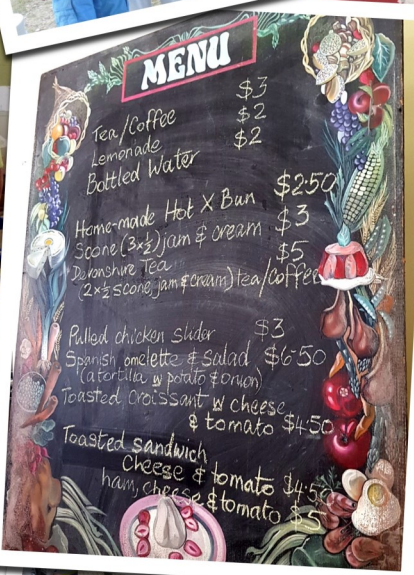 MENU
Tea/Coffee $3
Lemonade $2
Bottled Water $2
Home-made Hot X Bun $2.50
Scone (3x½) jam & cream $3
Devonshire Tea $5
(2x½ scone, jam & cream) tea/coffee
Pulled chicken slider $3
Spanish omelette & Salad $6.50
(a tortilla w potato & onion)
Toasted Croissant w cheese
& tomato $4.50
Toasted sandwich
Cheese & tomato $4.50
ham, cheese & tomato $5